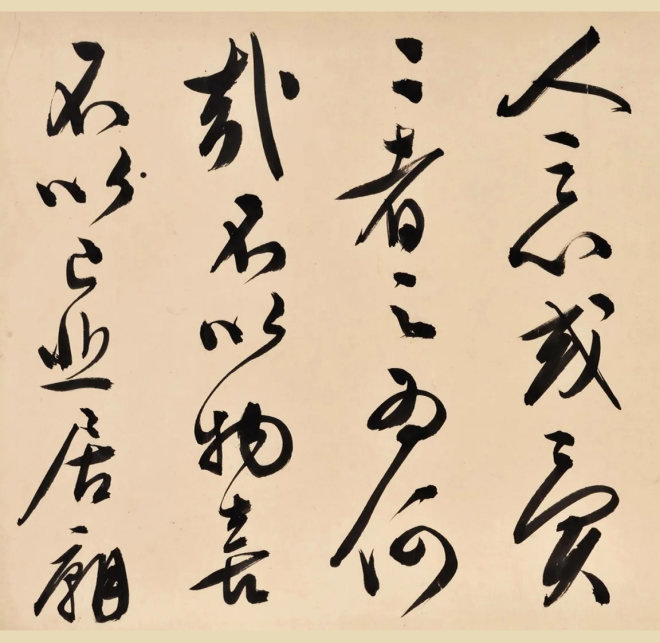 人之心或異
二者之為何
哉不以物喜
不以己悲居廟